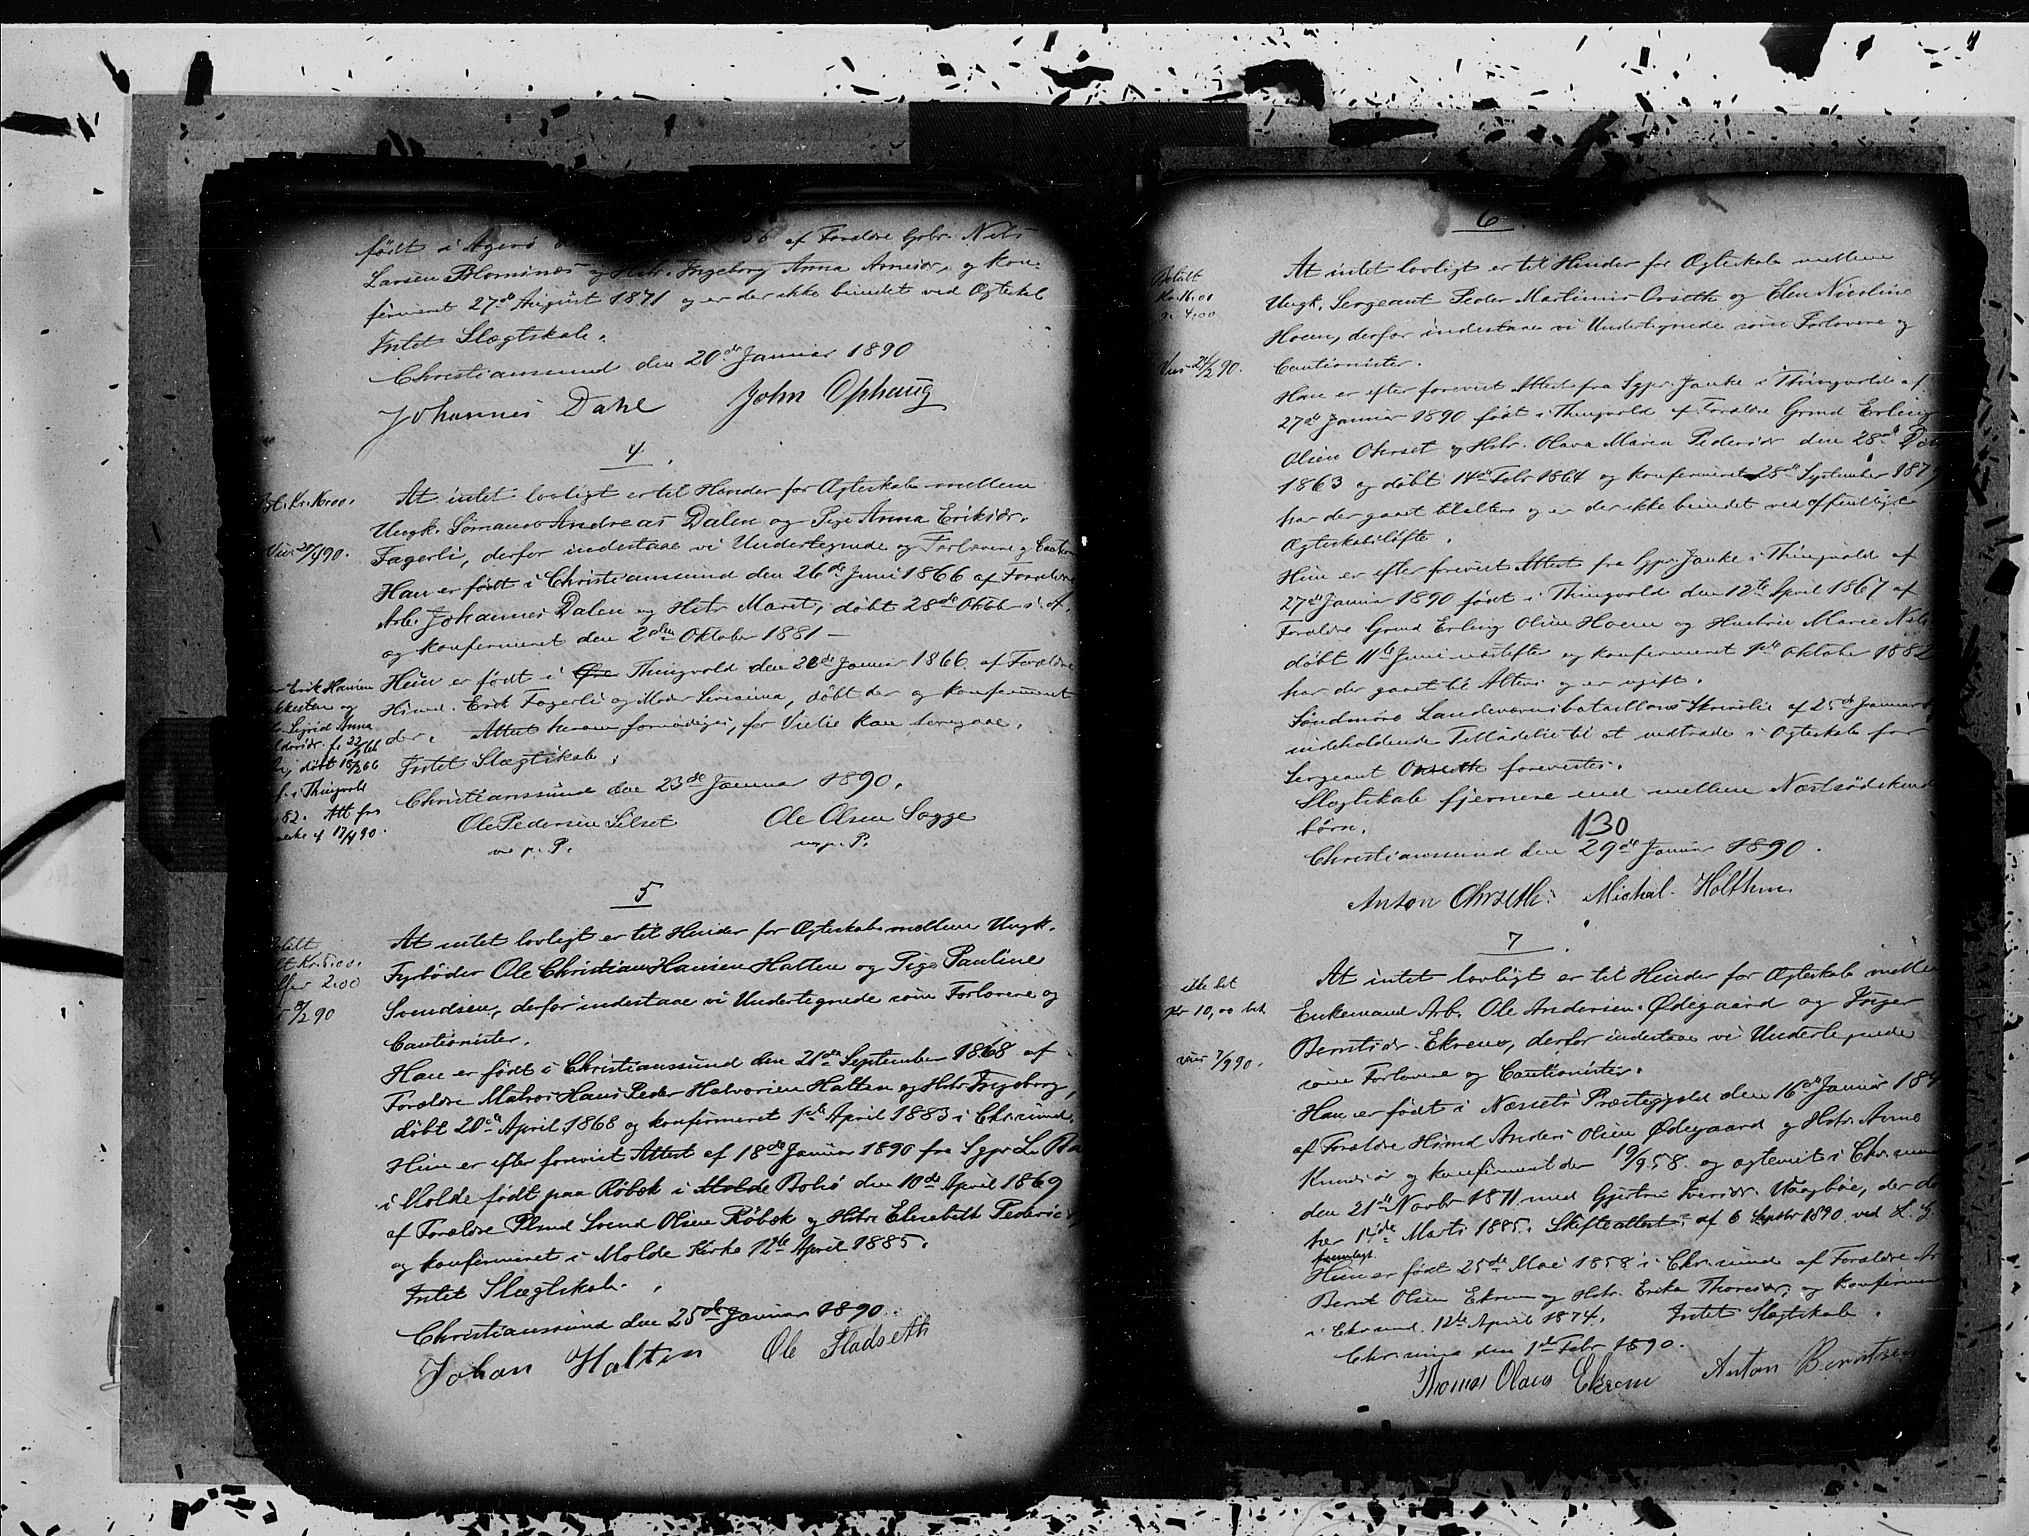 født i Agerø d 1856 af Foreldre Gbr. Nils
Larsen Blomnæs og Hstr. Ingeborg Anna Arnesdr. og kon-
firmeret 27de August 1871 og er der ikke bundet ved Ægteskab
Intet Slægtskab.
Christianssund den 20de Januar 1890
Johannes Dahl John Ophaug
4.
Bet. Kr. 16.00.
Viet 90.
At intet lovligt er til Hinder for Ægteskab mellem
Ungk. Sømand Andreas Dalen og Pige Anna Eriksdr.
Fagerli, derfor indestaae vi Undertegnede og Forlovere og
Han er født i Christianssund den 26de Juni 1866 af Foreldre
Arb. Johannes Dalen og Hstr. Maret, døbt 28de Oktbr s. A.
og konfirmeret den 2den Oktober 1881 —
Hun er født i Øre Thingvold den 22de Januar 1866 af Foreldre
Husmd. Erik Fagerli og Moder, døbt der og konfirmeret
der. Attest herom fornødiges, før Vielse kan foregaae.
Intet Slægtskab.
Erik Hansen
og
Sigrid Anna
f. 22/1 66
døbt 18/2 66
Thingvold
82. Att fra
af 17/4 90.
Christianssund den 23de Januar 1890.
Ole Pedersen Silset Ole Olsen Sogge
m. p. P. m. p. P.
5
Betalt
Kr. 5.00.
Offer 2.00
/2 90
At intet lovligt er til Hinder for Ægteskab mellem Ungk.
Fyrbøder Ole Christian Hansen Halten og Pige Pauline
Svendsen, derfor indestaae vi Undertegnede som Forlovere og
Cautionister.
Han er født i Christianssund den 21de September 1868 af
Foreldre Matros Hans Peder Halvorsen Halten og Hstr. Ingeborg,
døbt 20de April 1868 og konfirmeret 1ste April 1883 i Chr.sund.
Hun er efter forevist Attest af 18de Januar 1890 fra Sgpr.
i Molde født paa Røbek i Molde Bolsø den 10de April 1869
af Foreldre Plmd Svend Olsen Røbek og Hstr. Elisabeth Pedersdr.
og konfirmeret i Molde Kirke 12te April 1885.
Intet Slægtskab.
Christianssund den 25de Januar 1890.
Johan Halten Ole Fladseth
6
Betalt
Kr. 16.00
4,00
Viet 21/2 90.
At intet lovligt er til Hinder for Ægteskab mellem
Ungk. Sergeant Peder Martinus Orseth og Elen Nicoline
Hoem, derfor indestaae vi Undertegnede som Forlovere og
Cautionister.
Han er efter forevist Attest fra Sgpr. Janke i Thingvold af
27de Januar 1890 født i Thingvold af Foreldre Grmd Erling
Olsen Orset og Hstr. Olava Marea Pedersdr den 28de
1863 og døbt 14de Febr 1864 og konfirmeret 28de September 1879
har der gaaet til Alters og er der ikke bundet ved offentligt
Ægteskabsløfte.
Hun er efter forevist Attest fra Sgpr. Janke i Thingvold af
27de Januar 1890 født i Thingvold den 12te April 1867 af
Foreldre Grmd Erling Olsen Hoem og Hustru Marie Nils
døbt 11te Juni næstefter og konfirmeret 1ste Oktober 1882
har der gaaet til Alters og er ugift.
Søndmøre Landeværnsbataillons Skrivelse af 25de Januar
indeholdende Tilladelse til at indtræde i Ægteskab for
Sergeant Orseth forevistes.
Slægtskab fjernere end mellem Næstsødskende
børn.
130
Christianssund den 29de Januar 1890.
Anton Ohrseth. Michal Holthen
7.
ikke bet
Kr 10,00 bet
viet 7/9 90.
At intet lovligt er til Hinder for Ægteskab mellem
Enkemand Arb. Ole Andersen Ødegaard og Inger
Berntsdr. Ekrem, derfor indestaae vi Undertegnede
som Forlovere og Cautionister.
Han er født i Næssets Præstegjeld den 16de Januar 18
af Foreldre Husmd Anders Olsen Ødegaard og Hstr. Anne
Knudsdr og konfirmeret den 19/9 58 og ægteviet i Chr.sund
den 21de Novbr 1871 med Gjertru Iversdr. Vaagbøe, der døde
her 14de Marts 1885. Skifteattest af 6 Septbr 1890 ved L. G.
fremlagt.
Hun er født 25de Mai 1858 i Chr.sund af Foreldre Ar
Bernt Olsen Ekrem og Hstr. Erika Thoresdr. og konfirmer
i Chr.sund 12te April 1874. Intet Slægtskab.
Chr.sund den 1ste Febr 1890.
Thomas Olaus Ekrem Anton Berntsen